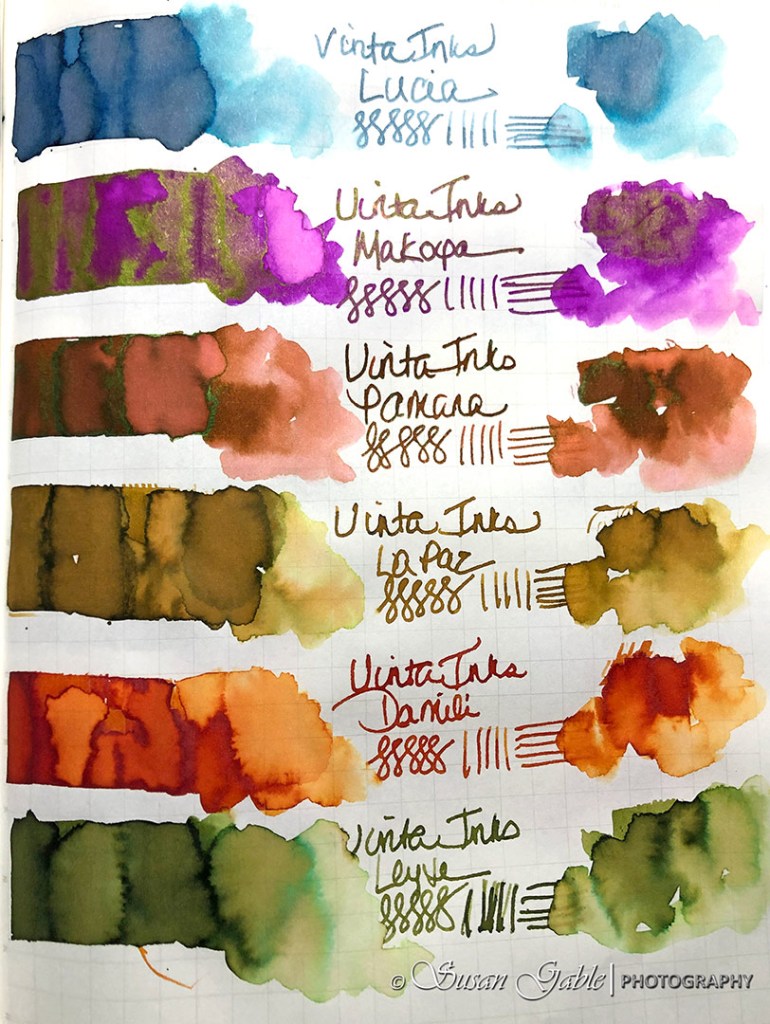 Vinta Inks
Lucia
Vinta Inks
Makopa
Vinta Inks
Pamana
Vinta Inks
La Paz
Vinta Inks
Damili
Vinta Inks
Leyte
© Susan Gable | PHOTOGRAPHY